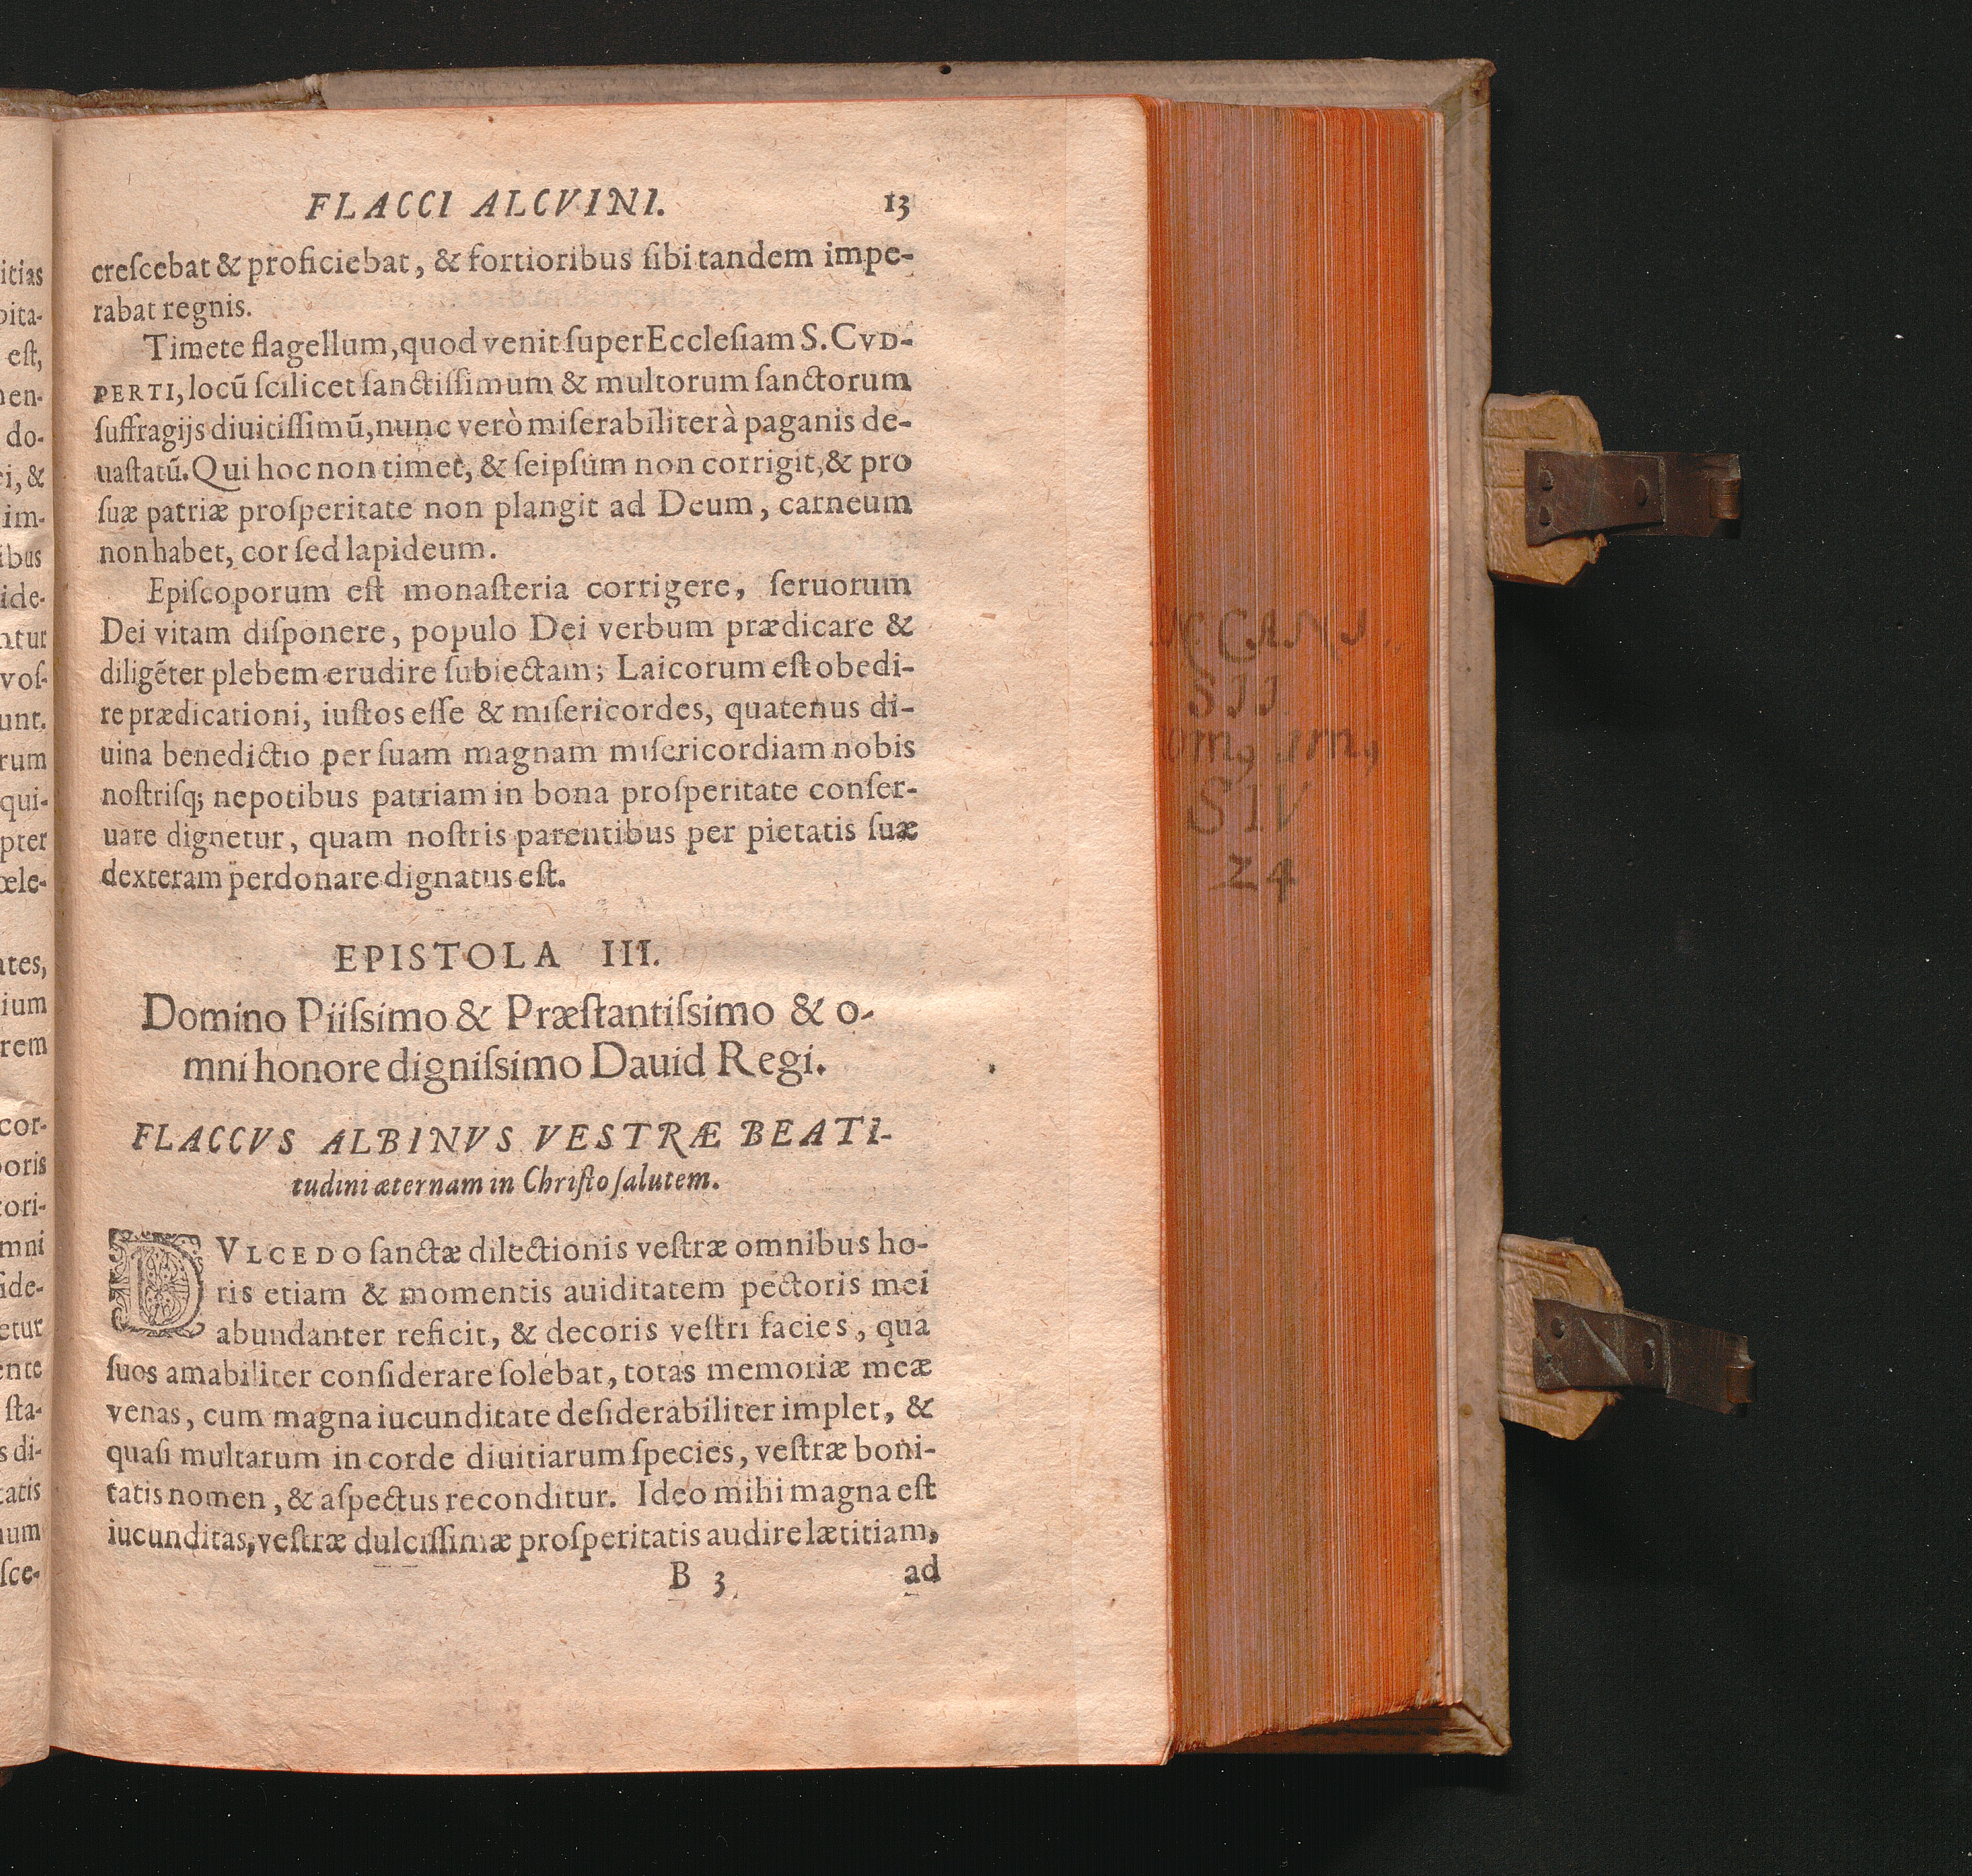 FLACCI ALCVINI. 13
creſcebat & proficiebat, & fortioribus ſibi tandem impe-
rabat regnis.
Timete flagellum, quod venit ſuper Eccleſiam S. CVD-
PERTI, locũ ſcilicet ſanctiſſimum & multorum ſanctorum
ſuffragijs diuitiſſimũ, nunc verò miſerabiliter à paganis de-
uaſtatũ. Qui hoc non timet, & ſeipſum non corrigit, & pro
ſuæ patriæ proſperitate non plangit ad Deum, carneum
non habet, cor ſed lapideum.
Epiſcoporum eſt monaſteria corrigere, ſeruorum
Dei vitam diſponere, populo Dei verbum prædicare &
diligẽter plebem erudire ſubiectam; Laicorum eſt obedi-
re prædicationi, iuſtos eſſe & miſericordes, quatenus di-
uina benedictio per ſuam magnam miſericordiam nobis
noſtriſq; nepotibus patriam in bona proſperitate conſer-
uare dignetur, quam noſtris parentibus per pietatis ſuæ
dexteram perdonare dignatus eſt.
EPISTOLA III.
Domino Piiſsimo & Præſtantiſsimo & o-
mni honore digniſsimo Dauid Regi.
FLACCVS ALBINVS VESTRÆ BEATI-
tudini æternam in Chriſto ſalutem.
DVLCEDO ſanctæ dilectionis veſtræ omnibus ho-
ris etiam & momentis auiditatem pectoris mei
abundanter reficit, & decoris veſtri facies, quá
ſuos amabiliter conſiderare ſolebat, totas memoriæ meæ
venas, cum magna iucunditate deſiderabiliter implet, &
quaſi multarum in corde diuitiarum ſpecies, veſtræ boni-
tatis nomen, & aſpectus reconditur. Ideo mihi magna eſt
iucunditas, veſtræ dulciſſimæ proſperitatis audire lætitiam,
B 3 ad
SIV
24